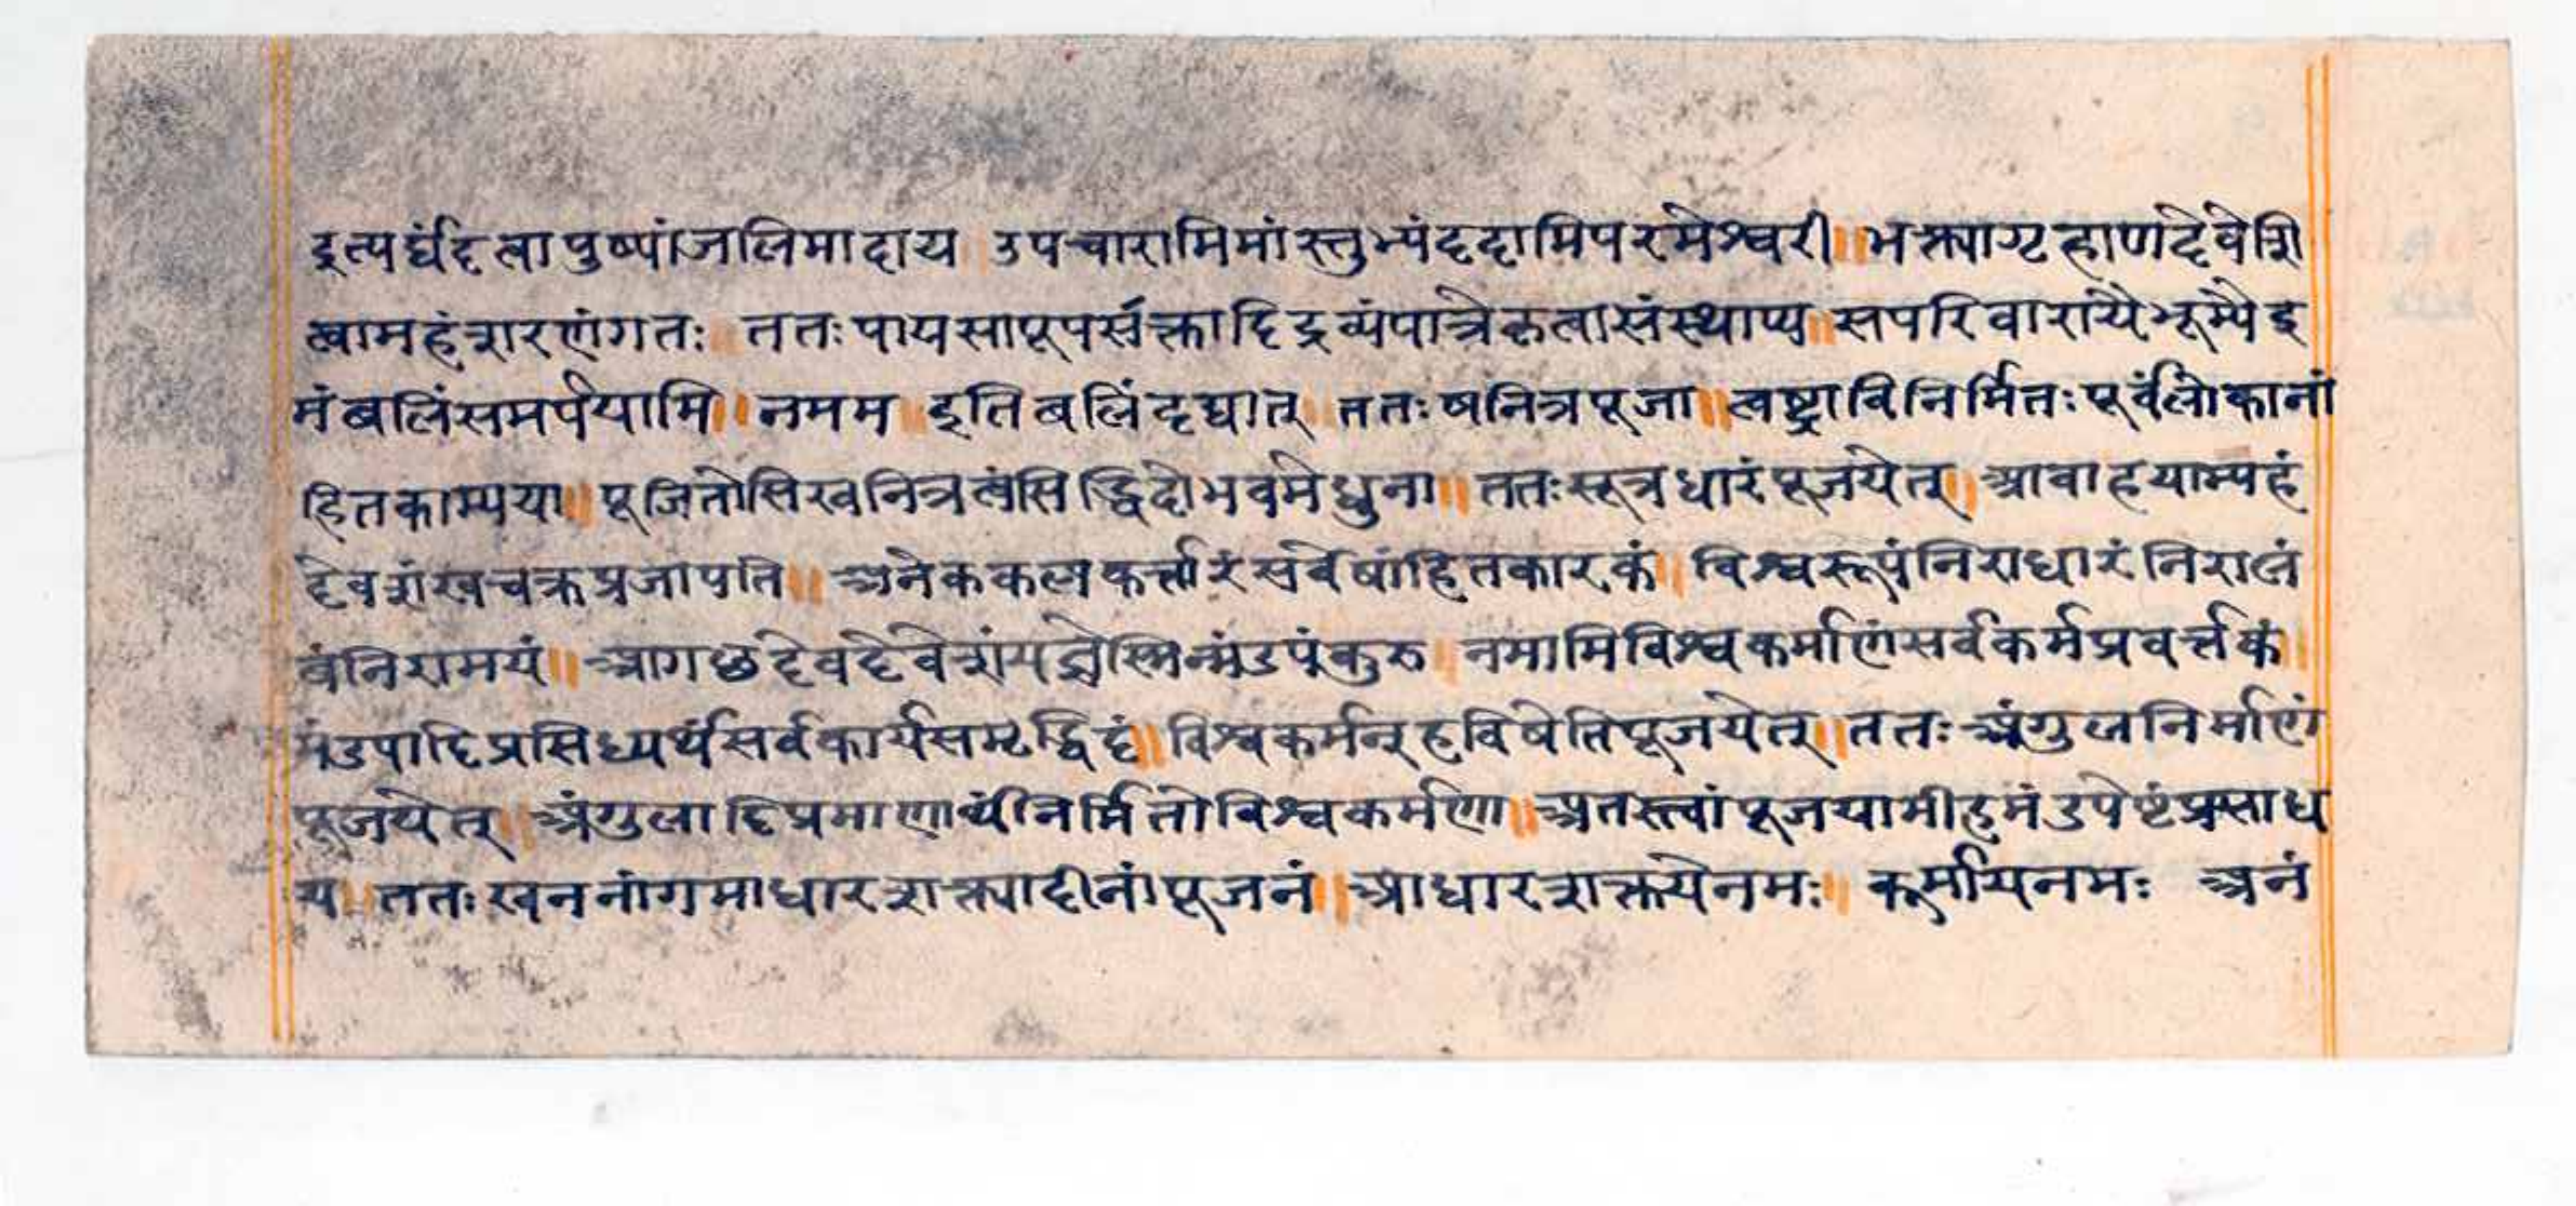 इत्यर्घंदत्वापुष्पांजलिमादाय उपचारामिमांस्तुभ्यंददामिपरमेश्वरी॥भक्त्यागृहाणदेवेशि
त्वामहंशरणंगतः ततःपायसापूपसक्तादिद्रव्यंपात्रेकृत्वासंस्थाप्य॥सपरिवारायैभूम्यैइ
मंबलिंसमर्पयामि॥नमम॥इतिबलिंदद्यात्॥ततःषनित्रपूजा॥त्वष्ट्राविनिर्मितःपूर्वंलोकानां
हितकाम्यया॥पूजितोसिखनित्रत्वंसिद्धिदोभवमेधुना॥ततःसूत्रधारंपूजयेत्॥आवाहयाम्यहं
देवशंखचक्रप्रजापति॥अनेककल्पकर्त्तारंसर्वेषांहितकारकं॥विश्वरूपंनिराधारंनिरालं
बंनिरामयं॥आगछदेवदेवेशंयज्ञेस्मिन्मंडपंकुरु॥नमामिविश्वकर्माणंसर्वकर्मप्रवर्त्तकं॥
मंडपादिप्रसिध्यर्थंसर्वकार्यसमृद्धिदं॥विश्वकर्मन्हविषेतिपूजयेत्॥ततःअंगुलनिर्माणं
पूजयेत्॥अंगुलादिप्रमाणार्थंनिर्मितोविश्वकर्मणा॥अतस्त्वांपूजयामीहमंडपेष्टंप्रसाध
य॥ततःखननांगमाधारशक्त्यादीनांपूजनं॥आधारशक्तयेनमः॥कूर्मायनमः अनं